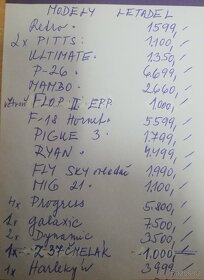 MODELY LETADEL
Retro . 1599,-
2x PITTS: 1.100,-
ULTIMATE. 1.350,-
P-26. 6.699,-
MAMBO. 2660,-
FLOP II. EPP. 1.000,-
F-18 Hornet. 5.599,-
PIGUE 3. 1.799,-
RYAN. 4.499,-
FLY SKY 1.990,-
MIG 21. 1.100,-
4x Progress 5.800,-
1x galaxic 7.500,-
2x Dynamic 3500,-
1x Z 37 ČMELÁK 1.000,-
1x 3.999,-